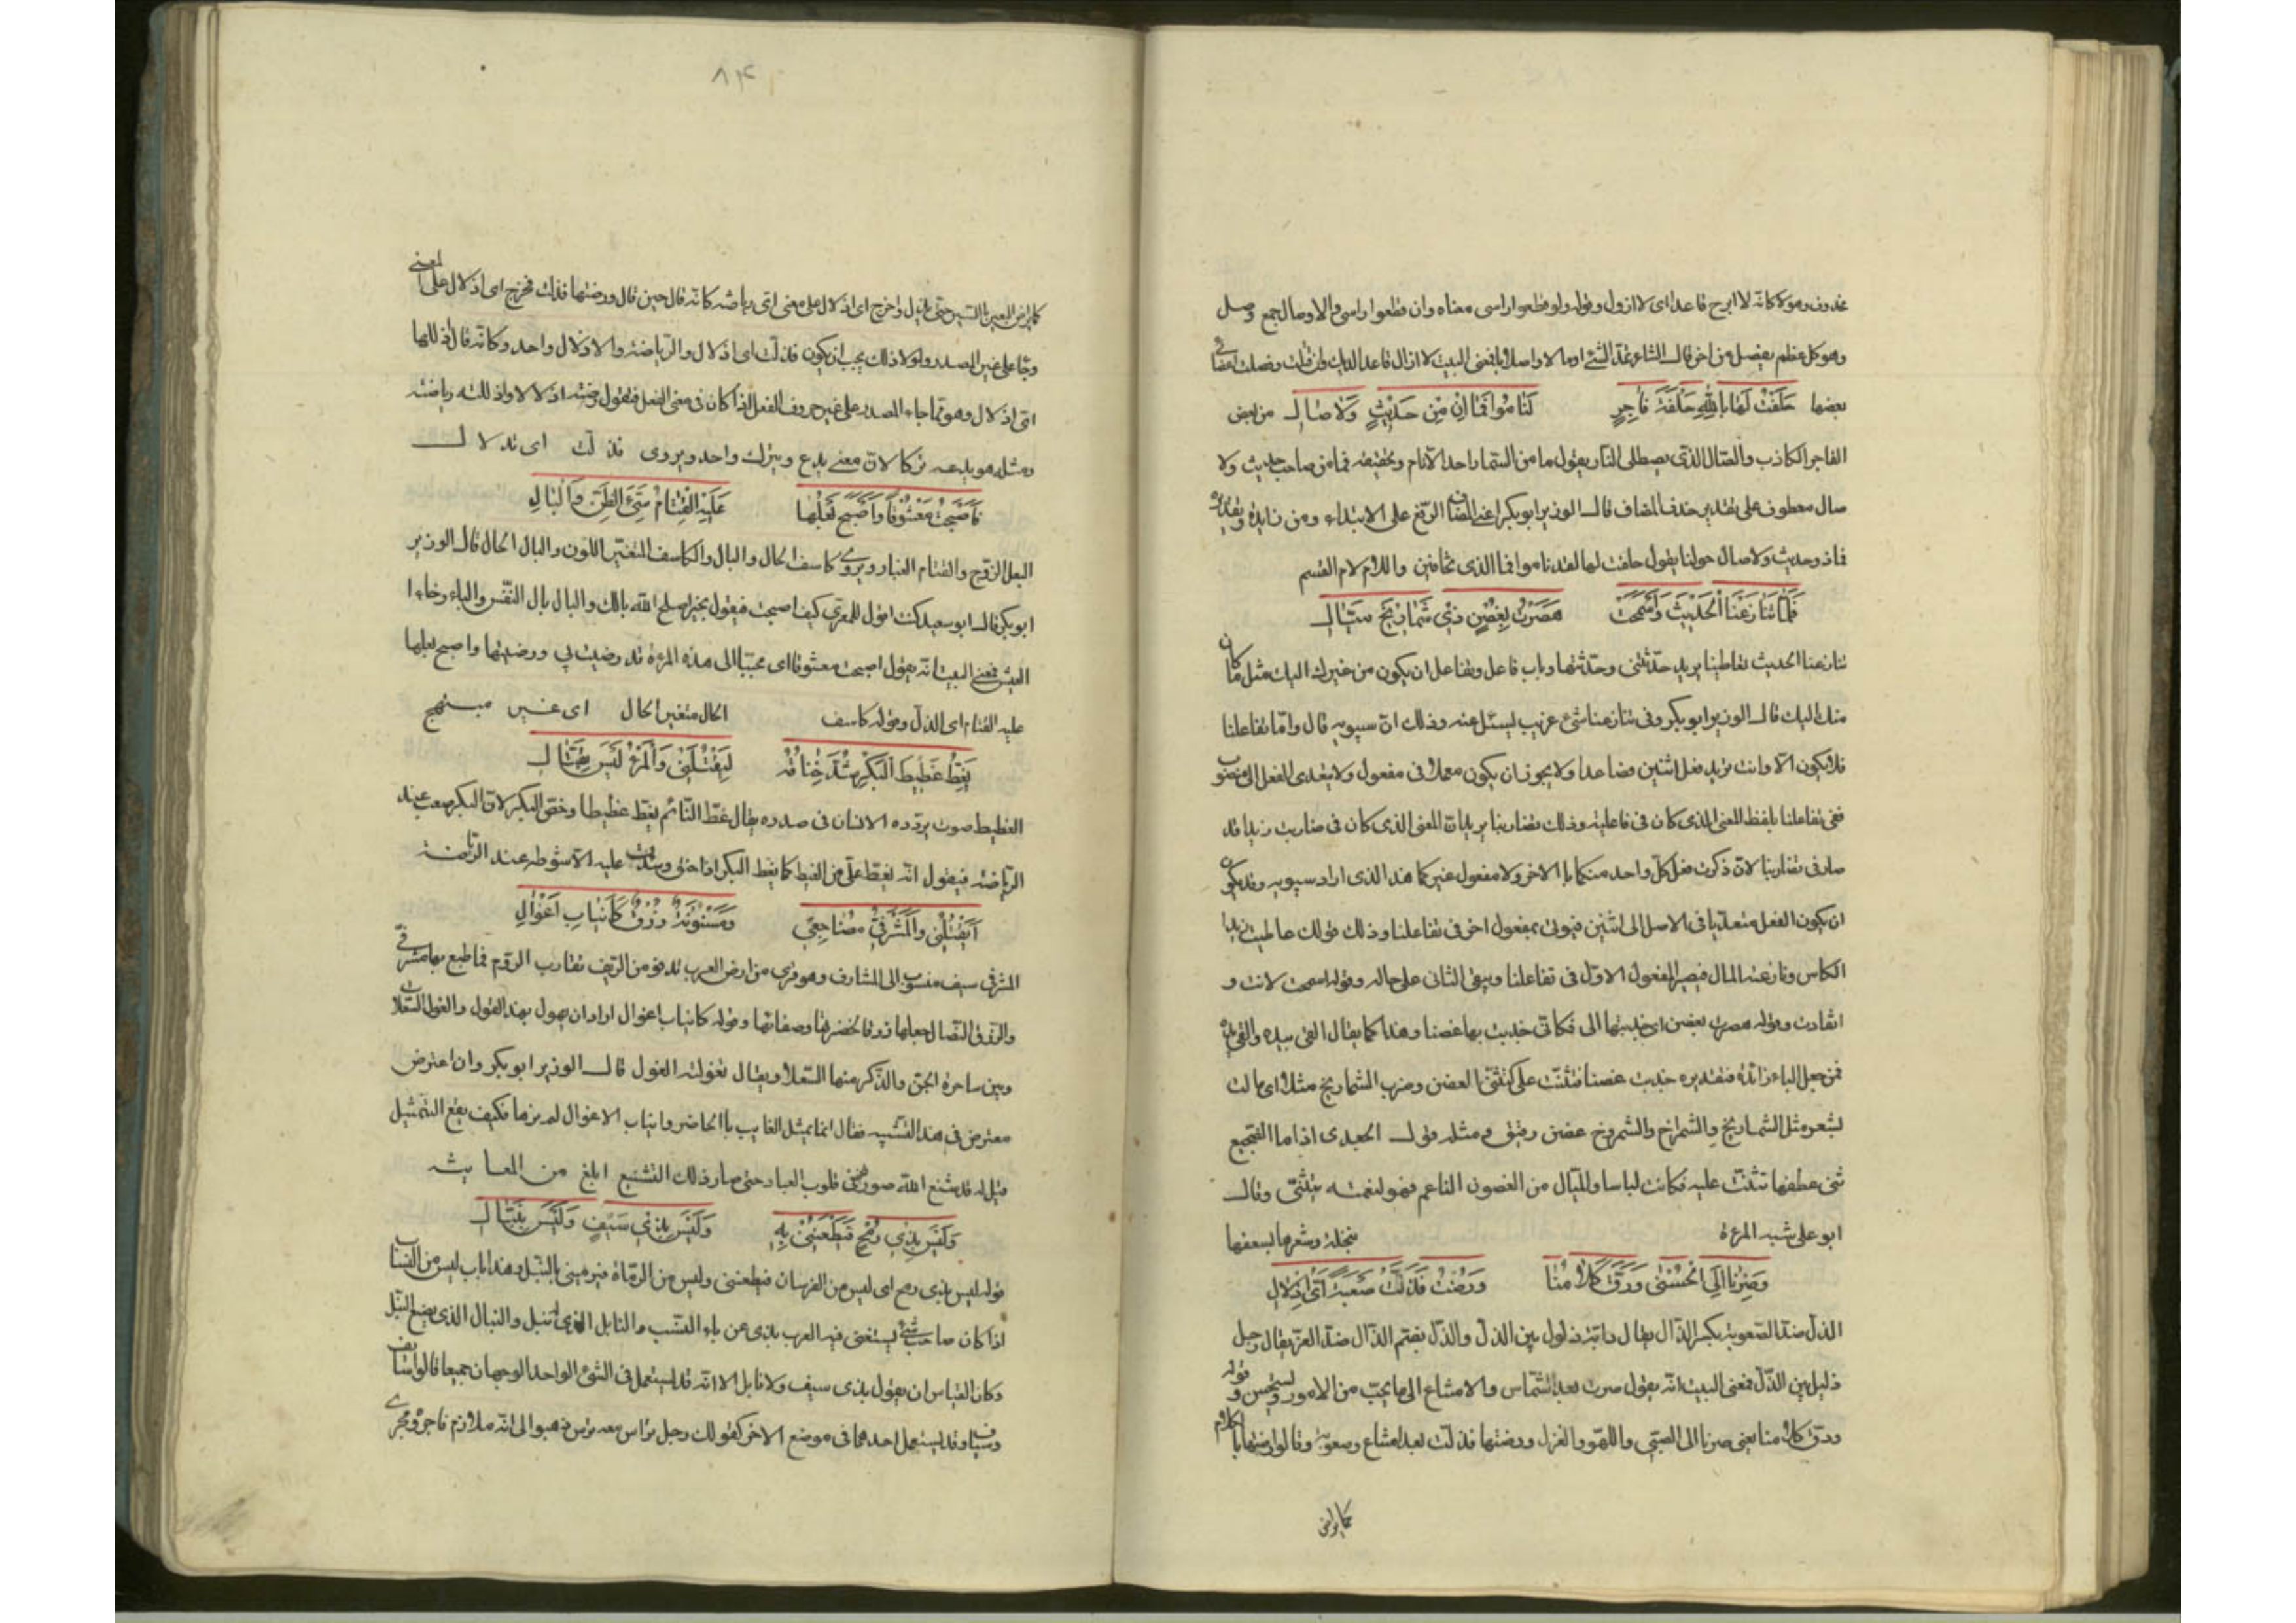 محذوف وهو لا كانه لا ابرح قاعدا اى لا ازول وقوله ولو قطعوا راسى معناه وان قطعوا راسى والاوصال جمع وصل
وهو كل عظم يفصل من اخر قال الشاعر الشئ اوصالا واصلابا فمعنى البيت لا ازال قاعدا لديك وان قتلت وفصلت اعضائى
بعضها حَلَفْتُ لَهَا بِاللهِ حَلْفَةَ فَاجِرٍ لَنَامُوا فَمَا اِنْ مِنْ حَدِيثٍ وَلَا صَالِ من بعض
الفاجر الكاذب والصال الذى يصطلى النار يقول ما من السمار احد الا نام وتحقيقه فما من صاحب حديث ولا
صال معطوف على تقدير حذف المضاف قال الوزير ابو بكر اعنى المضاف الرفع على الابتداء ومن زايدة وتقديره
فما ذو حديث ولا صال حولنا يقول حلفت لها لقد ناموا فما الذى تخافين واللام لام القسم
فَلَمَّا تَنَازَعْنَا الْحَدِيثَ وَاَسْمَحَتْ هَصَرْتُ بِغُصْنٍ ذِي شَمَارِيخَ مَيَّالِ
تنازعنا الحديث تعاطينا يريد حدثتنى وحدثتها وباب فاعل وتفاعل ان يكون من غيرك اليك مثل ما كان
منك اليك قال الوزير ابو بكر وفى تنازعنا شئ عربيت ليسئل عنه وذلك ان سيبويه قال واما تفاعلنا
فلا يكون الا وانت تريد فعل اثنين فصاعدا ولا يجوز ان يكون معملا فى مفعول ولا يتعدى الفعل الى منصوب
ففى تفاعلنا يلفظ المعنى الذى كان فى فاعلته وذلك تضاربنا يريد ان المعنى الذى كان فى ضاربت زيدا قد
صار فى تضاربنا لان ذكرت فعل كل واحد منكما بالاخر ولا مفعول غيركما هذا الذى اراد سيبويه وقد يكون
ان يكون الفعل متعديا فى الاصل الى اثنين فيوتى بمفعول اخر فى تفاعلنا وذلك قولك عاطيت زيدا
الكاس ونازعته المال فيصير المفعول الاول فى تفاعلنا ويبقى الثانى على حاله وقوله اسمحت لانت و
انقادت وقوله هصرت بغصن اى جذبتها الى فكانى جذبت بها غصنا وهذا كما يقال القى بيده والقى يده
فمن جعل الباء زائدة فتقديره جذبت غصنا فتثنت على كتثنى الغصن وضرب الشماريخ مثلا اى مالت
بشعر مثل الشماريخ والشمراخ والشمروخ غصن رقيق ومثله قول الجعدى اذا ما الضجيع
ثنى عطفها تثنت عليه فكانت لباسا والميال من الغصون الناعم فهو لنعمته يتثنى وقال
ابو على شبه المرءة بنخلة وشعرها بسعفها
وَصِرْنَا اِلَى الْحُسْنٰى وَرَقَّ كَلَامُنَا وَرُضْتُ فَذَلَّتْ صَعْبَةً اَىَّ اِذْلَالِ
الذل ضد الصعوبة بكسر الذال يقال دابة ذلول بين الذل والذل بضم الذال ضد العز يقال رجل
ذليل بين الذل فمعنى البيت انه يقول صرت بعد الشماس والامتناع الى ما يحب من الامور ويستحسن وقوله
ورق كلامنا يعنى صرنا الى الصبى واللهو والغزل ورضتها فذلت بعد امتناع وصعوبة وقالوا رضتها بالكلام
كما يراض
٨٤
كما يراض البعير بالسير حتى يذل واخرج اى اذلال على معنى اى رياضة كانه قال حين قال ورضتها فذلت فخرج اى اذلال على المعنى
وجا على غير المصدر ولولا ذلك يجب ان يكون فذلت اى اذلال والرياضة والاذلال واحد وكانه قال اذللها
اى اذلال وهو مما جاء المصدر على غير حروف الفعل اذا كان فى معنى الفعل فتقول رضته اذلالا واذللته رياضة
ومثله هو يدعه تركا لان معنى يدع ويترك واحد ويروى فذلت اى تدلال
فَاَصْبَحْتُ مَعْشُوقًا وَاَصْبَحَ بَعْلُهَا عَلَيْهِ الْقَتَامُ سَيِّئَ الظَّنِّ وَالْبَالِ
البعل الزوج والقتام الغبار ويروى كاسف الحال والبال والكاسف المتغير اللون والبال الحال قال الوزير
ابو بكر قال ابو سعيد كنت اقول للمعرى كيف اصبحت فيقول بخير اصلح الله بالك والبال بال النفس والباء رخاء ا
العيش فمعنى البيت انه يقول اصبحت معشوقا اى محببا الى هذه المرءة قد رضيت بى ورضيتها واصبح بعلها
عليه القتام اى الذل وقوله كاسف الحال متغير الحال اى غير مبتهج
يَغِطُّ غَطِيطَ الْبَكْرِ شُدَّ خِنَاقُهُ لِيَقْتُلَنِى وَالْمَرْءُ لَيْسَ بِقَتَّالِ
الغطيط صوت يردده الانسان فى صدره يقال غط النائم يغط غطيطا وخص البكر لان البكر صعب عند
الرياضة فيقول انه يغط على من الغيظ كما يغط البكر اذا خنق وشدت عليه الانشوطه عند الرياضة
اَيَقْتُلُنِى وَالْمَشْرَفِىُّ مُضَاجِعِى وَمَسْنُونَةٌ زُرْقٌ كَاَنْيَابِ اَغْوَالِ
المشرفى سيف منسوب الى المشارف وهو قرى من ارض العرب تدنو من الريف تقارب الروم فما طبع بها مشرفى
والزرق النصال جعلها زرقا لخضرتها وصفائها وقوله كانياب اغوال اراد ان يهول بهذا القول والغول السعلات
وهى ساحرة الجن والذكر منها السعلا ويقال تغولته الغول قال الوزير ابو بكر وان اعترض
معترض فى هذا التشبيه فقال انما يمثل الغايب بالحاضر وانياب الاغوال لم نرها فكيف يقع التمثيل
قيل له قد شنع الله صورتها فى قلوب العباد حتى صار ذلك التشنيع ابلغ من المعاينة
وَلَيْسَ بِذِى رُمْحٍ فَيَطْعَنَنِى بِهِ وَلَيْسَ بِذِى سَيْفٍ وَلَيْسَ بِنَبَّالِ
قوله ليس بذى رمح اى ليس من الفرسان فيطعننى وليس من الرماة فيرمينى بالنبل وهذا باب ليس من النساب
اذا كان صاحب شئ يستغنى فيه العرب بذى عن ياء النسب والنابل الذى ينبل والنبال الذى يصنع النبل
وكان القياس ان يقول بذى سيف ولا نابل الا انه قد يستعمل فى الشئ الواحد الوجهان جميعا قالوا سائف
وسياف وقد يستعمل احدهما فى موضع الاخر كقولك رجل تراس معه ترس ذهبوا الى انه ملازم فاجروه مجرى